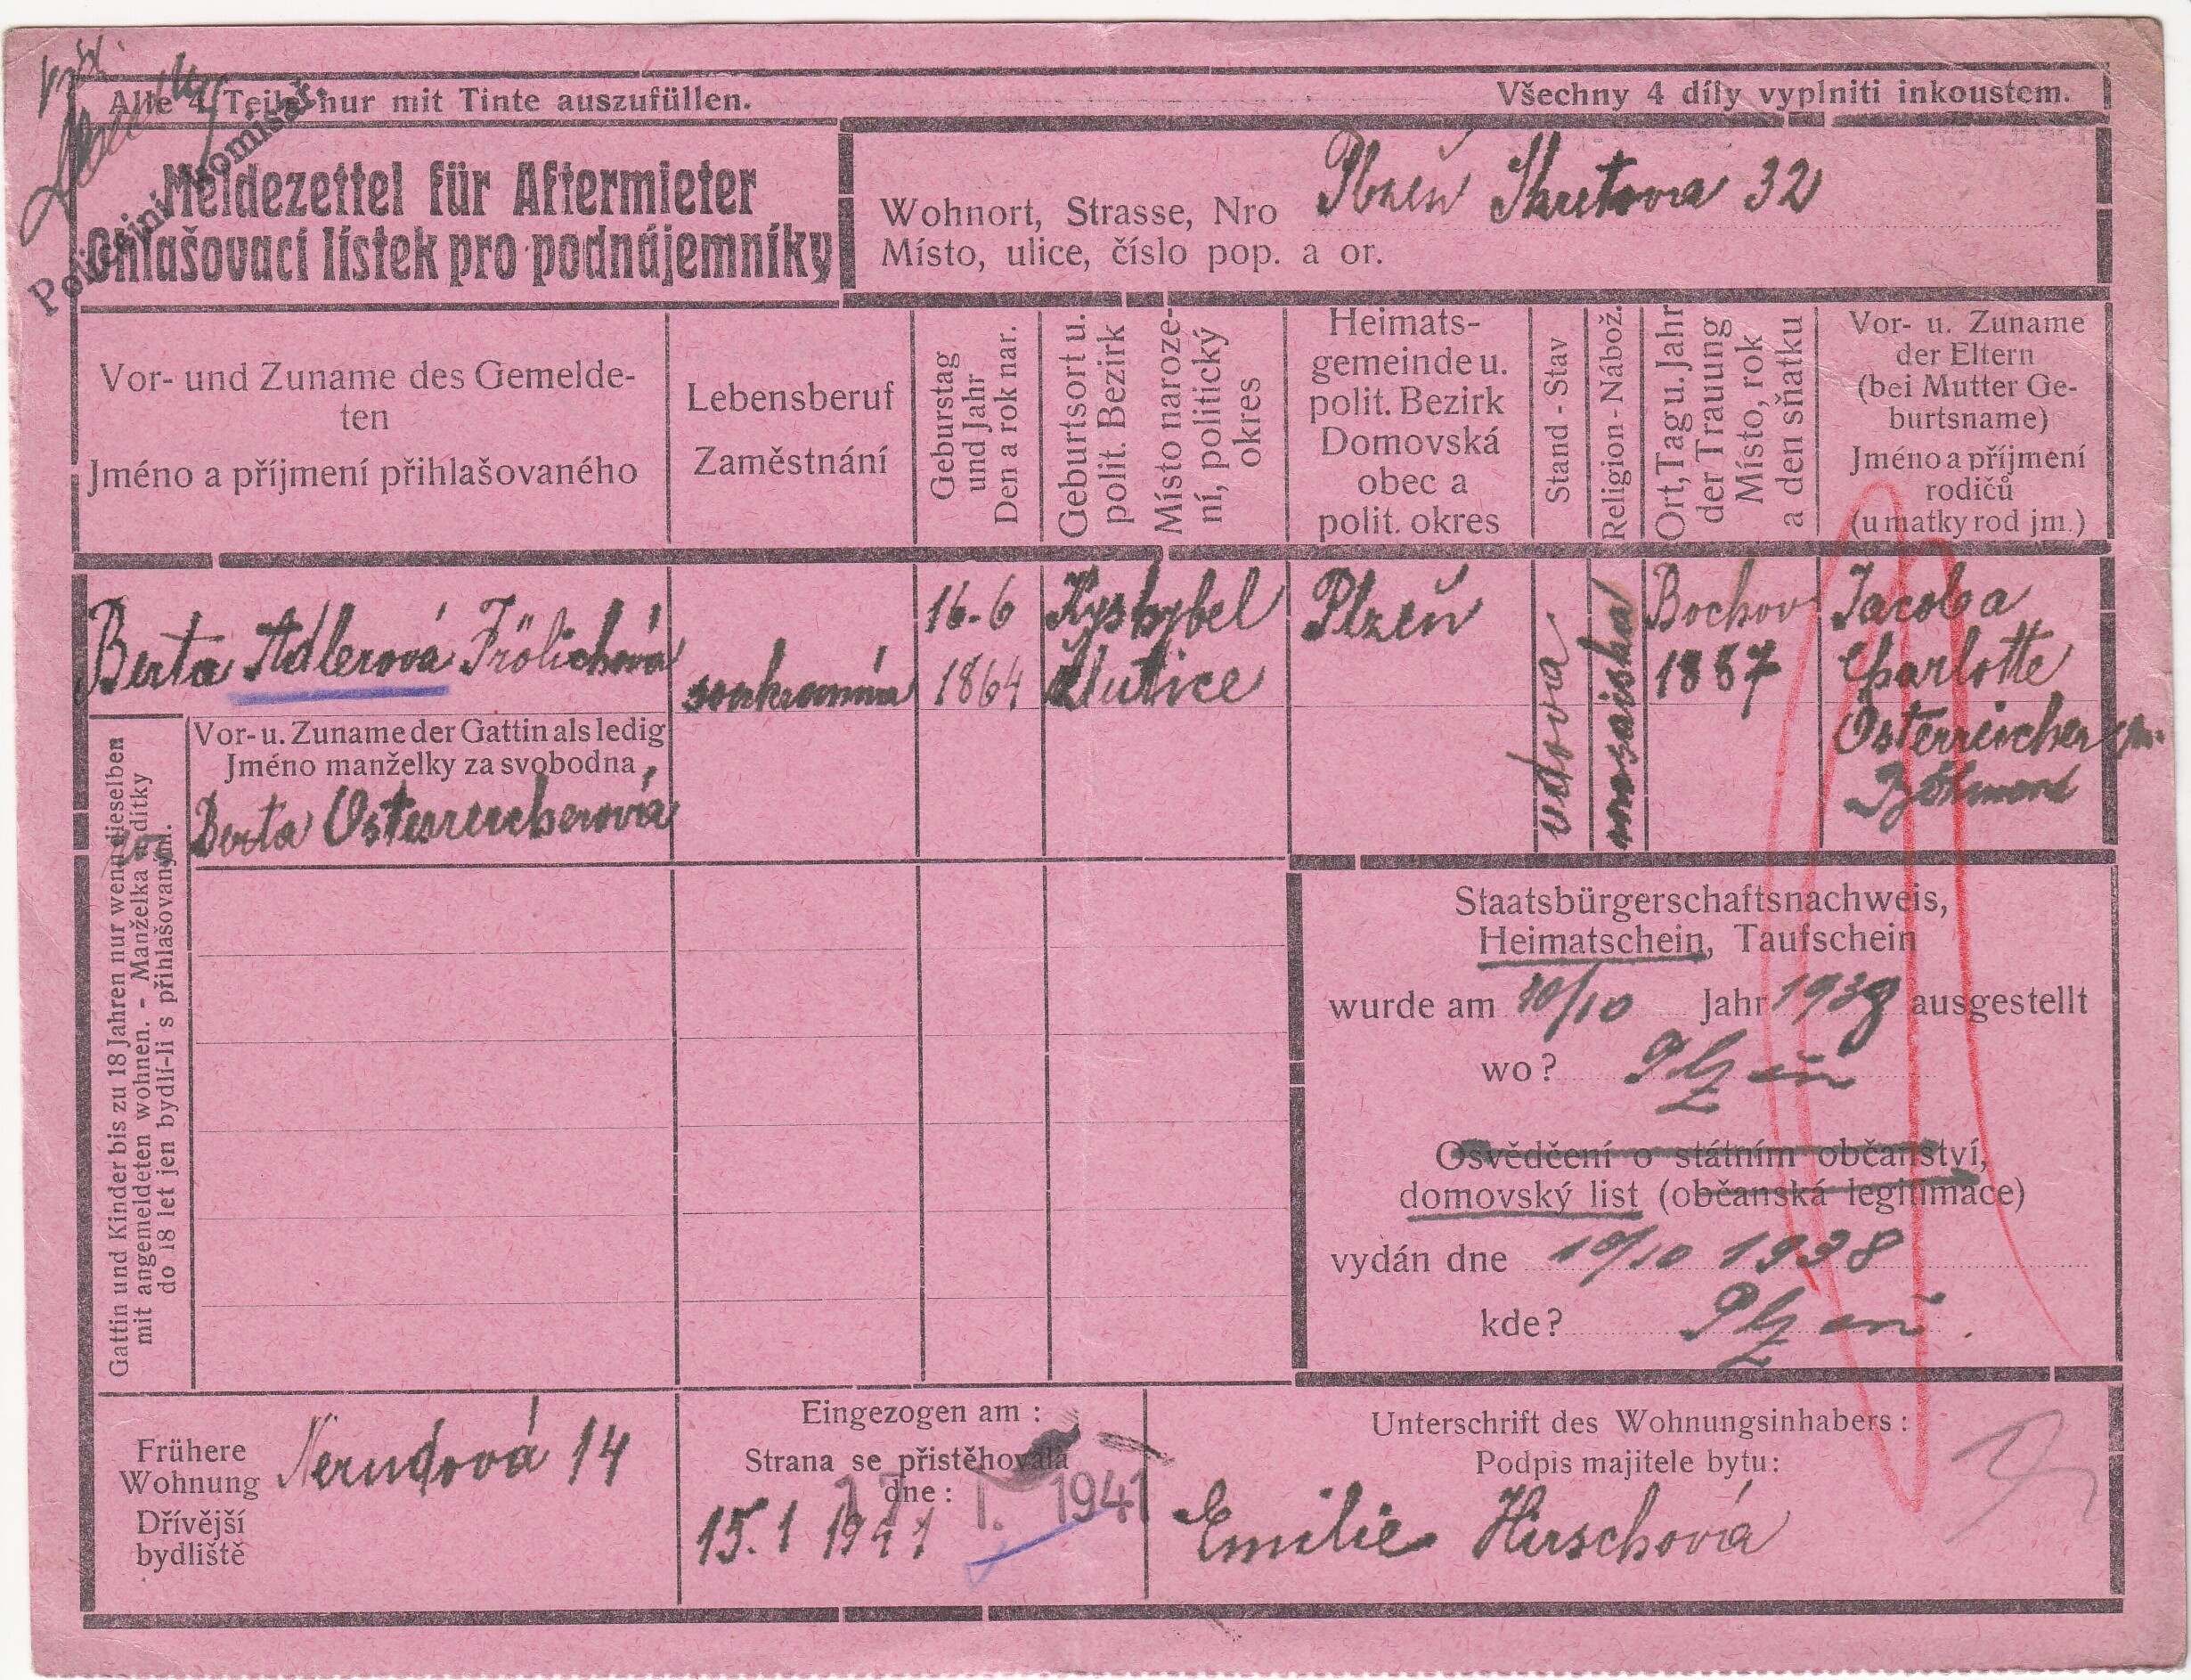 Alle 4 Teile nur mit Tinte auszufüllen.
Všechny 4 díly vyplniti inkoustem.
Policejní komisař.
Meldezettel für Aftermieter
Ohlašovací lístek pro podnájemníky
Wohnort, Strasse, Nro
Místo, ulice, číslo pop. a or.
Plzeň Skretova 32
Vor- und Zuname des Gemelde-
ten
Jméno a příjmení přihlašovaného
Lebensberuf
Zaměstnání
Geburstag
und Jahr
Den a rok nar.
Geburtsort u.
polit. Bezirk
Místo naroze-
ní, politický
okres
Heimats-
gemeinde u.
polit. Bezirk
Domovská
obec a
polit. okres
Stand - Stav
Religion - Nábož.
Ort, Tag u. Jahr
der Trauung
Místo, rok
a den sňatku
Vor- u. Zuname
der Eltern
(bei Mutter Ge-
burtsname)
Jméno a příjmení
rodičů
(u matky rod jm.)
Berta Adlerová Frölichová
soukromnice
16.6
1864
Kyshybel
Žlutice
Plzeň
vdova
mosaiská
Bochov
1887
Jacob a
Charlotte
Österreicher
Vor- u. Zuname der Gattin als ledig
Jméno manželky za svobodna
Berta Österreicherová
Gattin und Kinder bis zu 18 Jahren nur wenn dieselben
mit angemeldeten wohnen. - Manželka a dítky
do 18 let jen bydlí-li s přihlašovaným.
Staatsbürgerschaftsnachweis,
Heimatschein, Taufschein
wurde am 10/10 Jahr 1938 ausgestellt
wo? Plzeň
Osvědčení o státním občanství,
domovský list (občanská legitimace)
vydán dne 10/10 1938
kde? Plzeň
Frühere
Wohnung
Dřívější
bydliště
Nerudová 14
Eingezogen am:
Strana se přistěhovala
dne:
17. I. 1941
15.1 1941
Unterschrift des Wohnungsinhabers:
Podpis majitele bytu:
Emilie Hirschová